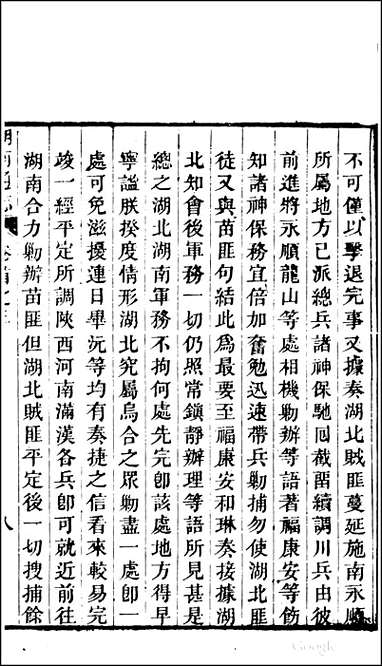 不可僅以擊退完事又據奏湖北賊匪蔓延施南永順
所屬地方已派總兵諸神保馳回截畱續調川兵由彼
前進將永順龍山等處相機勦辦等語著福康安等飭
知諸神保務宜倍加奮勉迅速帶兵勦捕勿使湖北匪
徒又與苗匪句結此爲最要至福康安和琳奏接據湖
北知會後軍務一切仍照常鎮靜辦理等語所見甚是
總之湖北湖南軍務不拘何處先完卽該處地方得早
寧謐朕揆度情形湖北究屬烏合之眾勦盡一處卽一
處可免滋擾連日畢沅等均有奏捷之信看來較易完
竣一經平定所調陝西河南滿漢各兵卽可就近前往
湖南合力勦辦苗匪但湖北賊匪平定後一切搜捕餘
卷首之三
八
Google